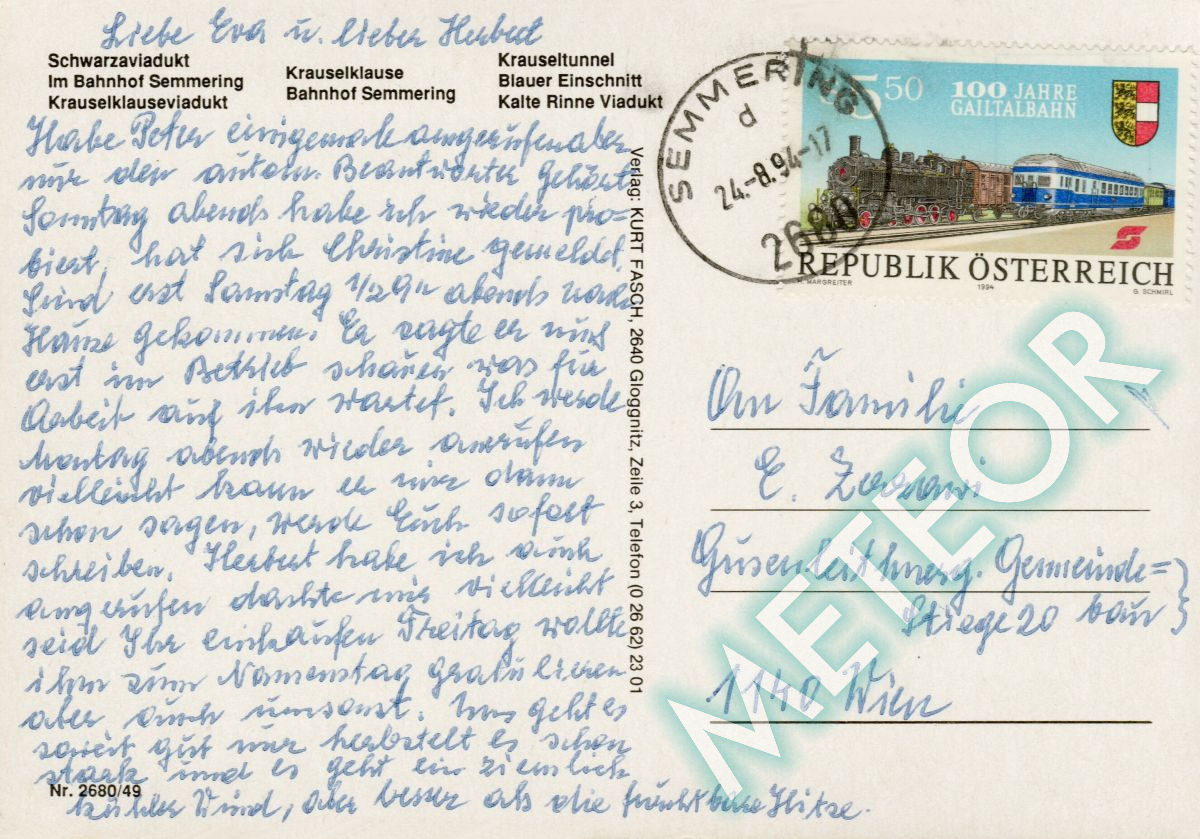 Liebe Eva u. lieber Herbert
Schwarzaviadukt
Im Bahnhof Semmering
Krauselklauseviadukt
Krauselklause
Bahnhof Semmering
Krauseltunnel
Blauer Einschnitt
Kalte Rinne Viadukt
Habe Peter einigemale angerufen aber
nur den autom. Beantworter gehört
Sonntag abends habe ich wieder pro=
biert, hat sich Christine gemeldet.
Sind erst Samstag 1/2 9h abends nach
Hause gekommen. Er sagte er muß
erst im Betrieb schauen was für
Arbeit auf ihn wartet. Ich werde
Montag abends wieder anrufen
vielleicht kann er mir dann
schon sagen, werde Euch sofort
schreiben. Herbert habe ich auch
angerufen dachte mir vielleicht
seid Ihr einkaufen Freitag wollte
ihm zum Namenstag gratulieren
aber auch umsonst. Uns geht es
soweit gut nur herbstelt es schon
stark und es geht ein ziemlich
kühler Wind, aber besser als die furchtbare Hitze.
Nr. 2680/49
Verlag: KURT FASCH, 2640 Gloggnitz, Zeile 3, Telefon (0 26 62) 23 01
SEMMERING
d
24.-8.94-17
2680
5 50
100 JAHRE
GAILTALBAHN
REPUBLIK ÖSTERREICH
H. MARGREITER
1994
G. SCHMIRL
An Familie
E.
Gusenleithnerg. Gemeinde=
Stiege 20 bau
1140 Wien
METEOR